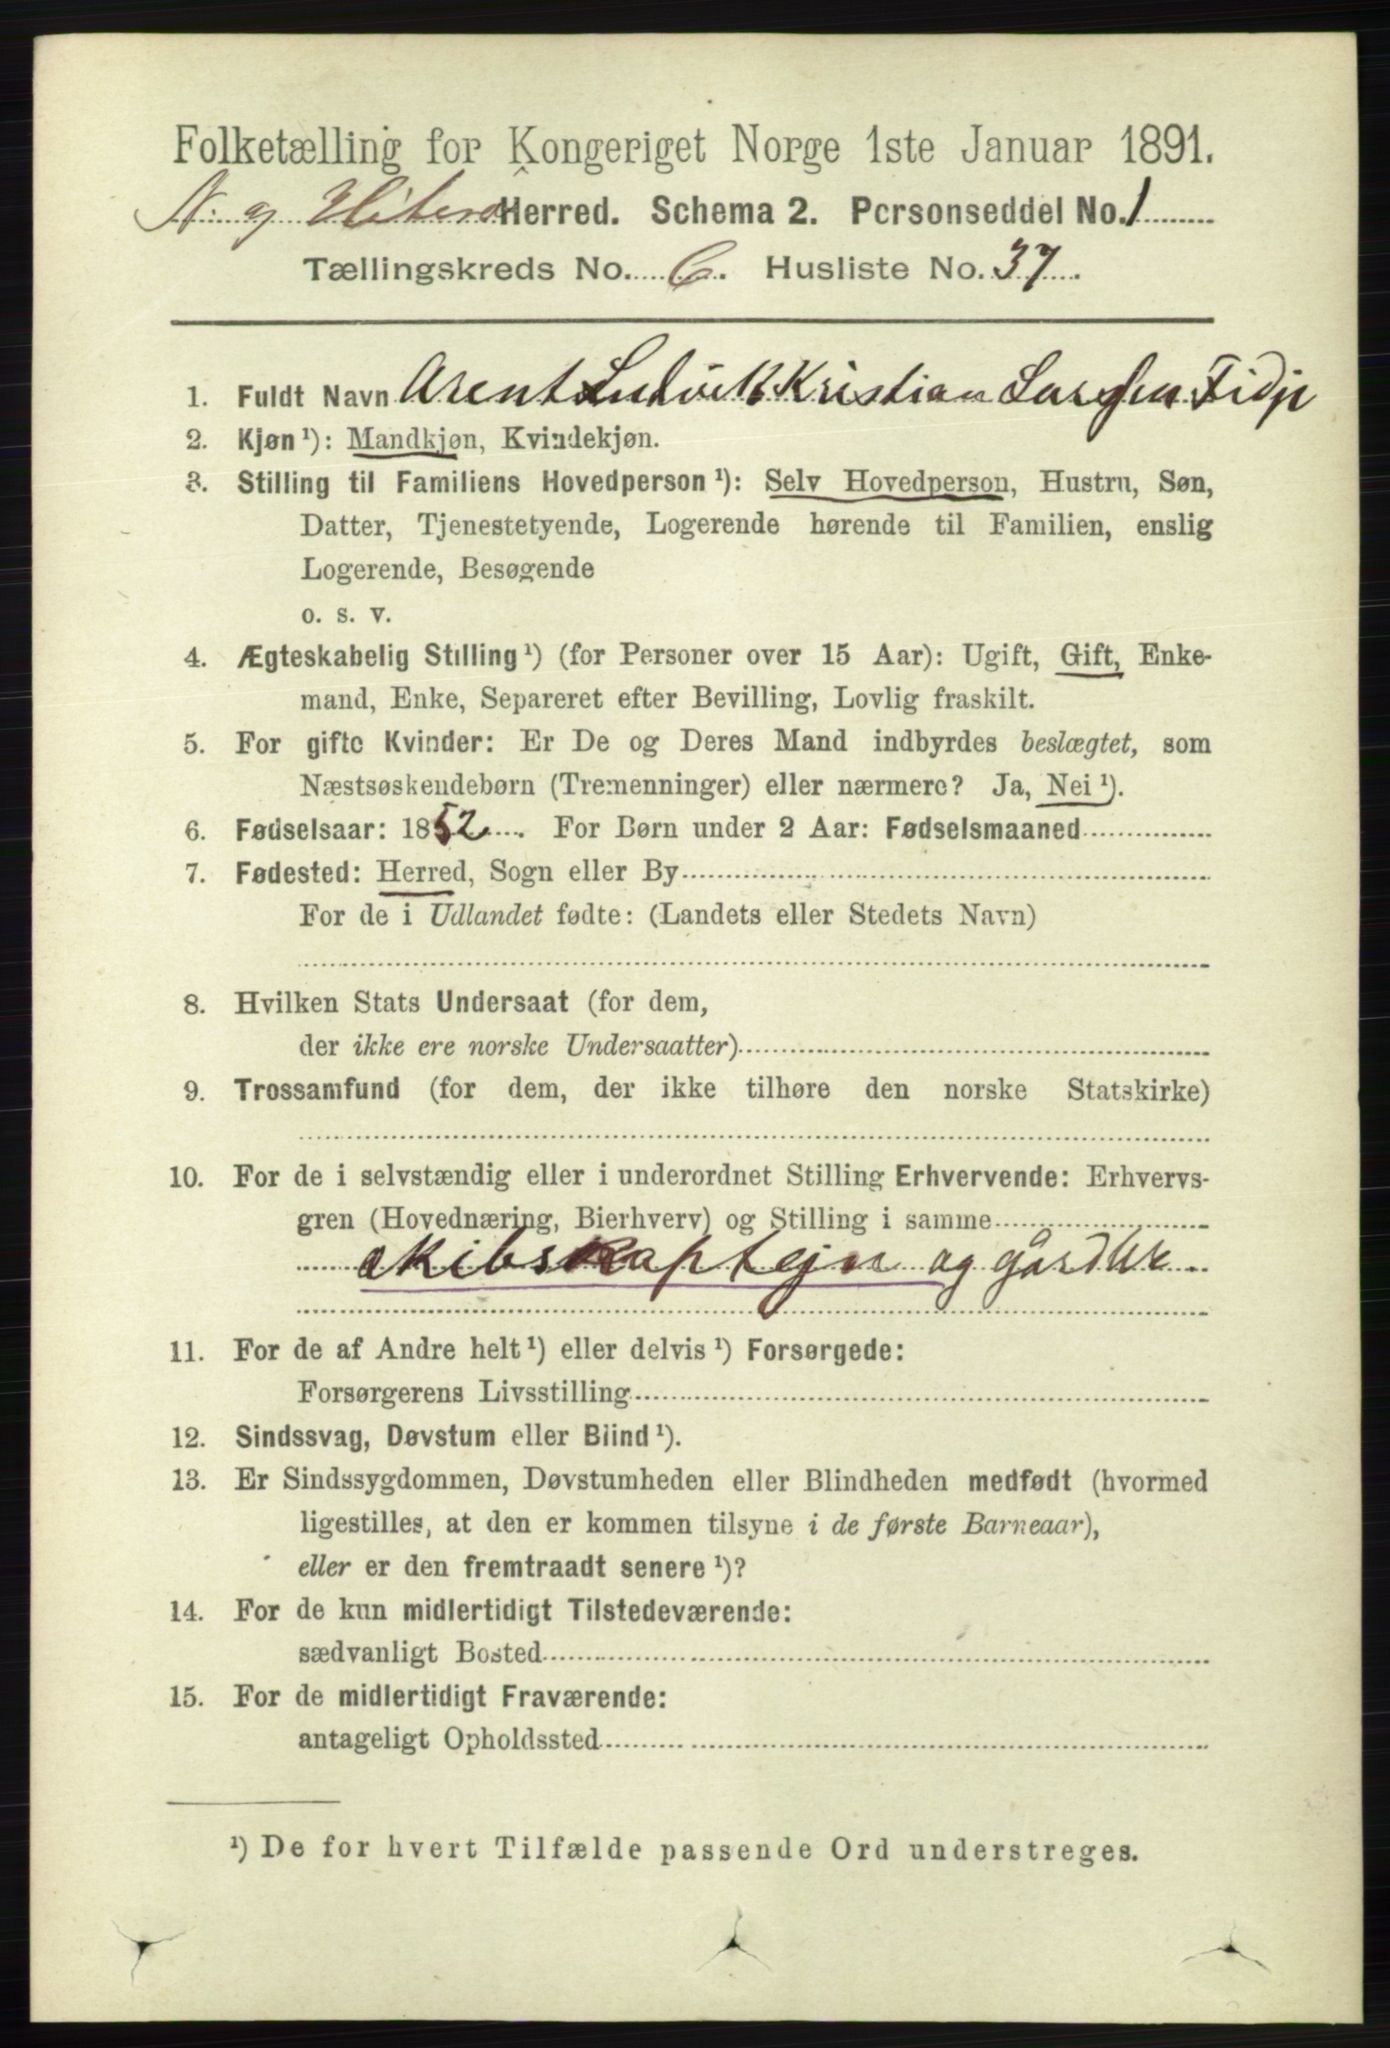 Folketælling for Kongeriget Norge 1ste Januar 1891.
N. og Hiterø Herred. Schema 2. Personseddel No. 1
Tællingskreds No. 6. Husliste No. 37.
1. Fuldt Navn Arent Ludvik Kristian Larsen Fidje
2. Kjøn ¹): Mandkjøn, Kvindekjøn.
3. Stilling til Familiens Hovedperson ¹): Selv Hovedperson, Hustru, Søn,
Datter, Tjenestetyende, Logerende hørende til Familien, enslig
Logerende, Besøgende
o. s. v.
4. Ægteskabelig Stilling ¹) (for Personer over 15 Aar): Ugift, Gift, Enke-
mand, Enke, Separeret efter Bevilling, Lovlig fraskilt.
5. For gifte Kvinder: Er De og Deres Mand indbyrdes beslægtet, som
Næstsøskendebørn (Tremenninger) eller nærmere? Ja, Nei ¹).
6. Fødselsaar: 1852. For Børn under 2 Aar: Fødselsmaaned
7. Fødested: Herred, Sogn eller By
For de i Udlandet fødte: (Landets eller Stedets Navn)
8. Hvilken Stats Undersaat (for dem,
der ikke ere norske Undersaatter)
9. Trossamfund (for dem, der ikke tilhøre den norske Statskirke)
10. For de i selvstændig eller i underordnet Stilling Erhvervende: Erhvervs-
gren (Hovednæring, Bierhverv) og Stilling i samme
skibskaptejn og
11. For de af Andre helt ¹) eller delvis ¹) Forsørgede:
Forsørgerens Livsstilling
12. Sindssvag, Døvstum eller Blind ¹).
13. Er Sindssygdommen, Døvstumheden eller Blindheden medfødt (hvormed
ligestilles, at den er kommen tilsyne i de første Barneaar),
eller er den fremtraadt senere ¹)?
14. For de kun midlertidigt Tilstedeværende:
sædvanligt Bosted
15. For de midlertidigt Fraværende:
antageligt Opholdssted
¹) De for hvert Tilfælde passende Ord understreges.